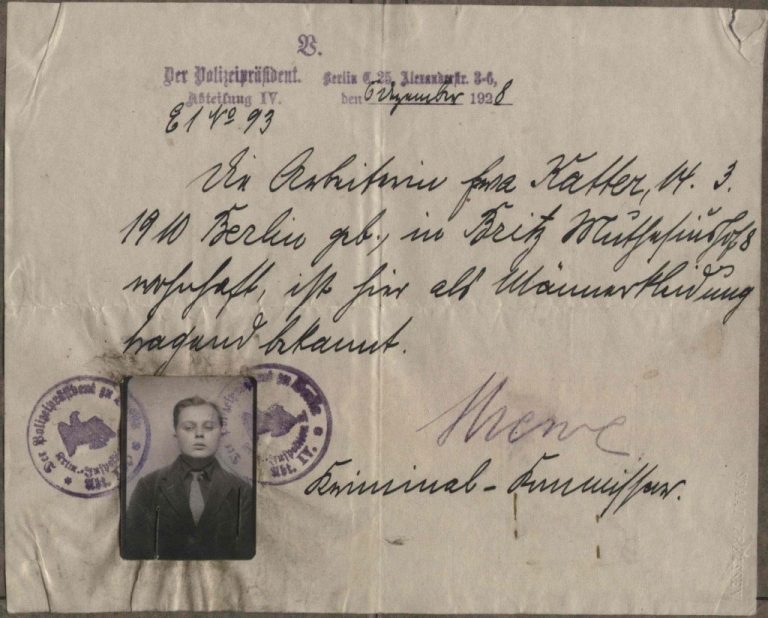 V.
Der Polizeipräsident. Berlin C. 25, Alexanderstr. 3-6,
Abteilung IV. den 6 Dezember 1928
E 1 No 93
Die Arbeiterin Eva Katter, 14. 3.
1910 Berlin geb., in Britz Muthesiushof 8
wohnhaft, ist hier als Männerkleidung
tragend bekannt.
Kriminal-Kommissar.
Der Polizeipräsident zu Berlin
Abt. IV.
Der Polizeipräsident zu Berlin
Abt. IV.